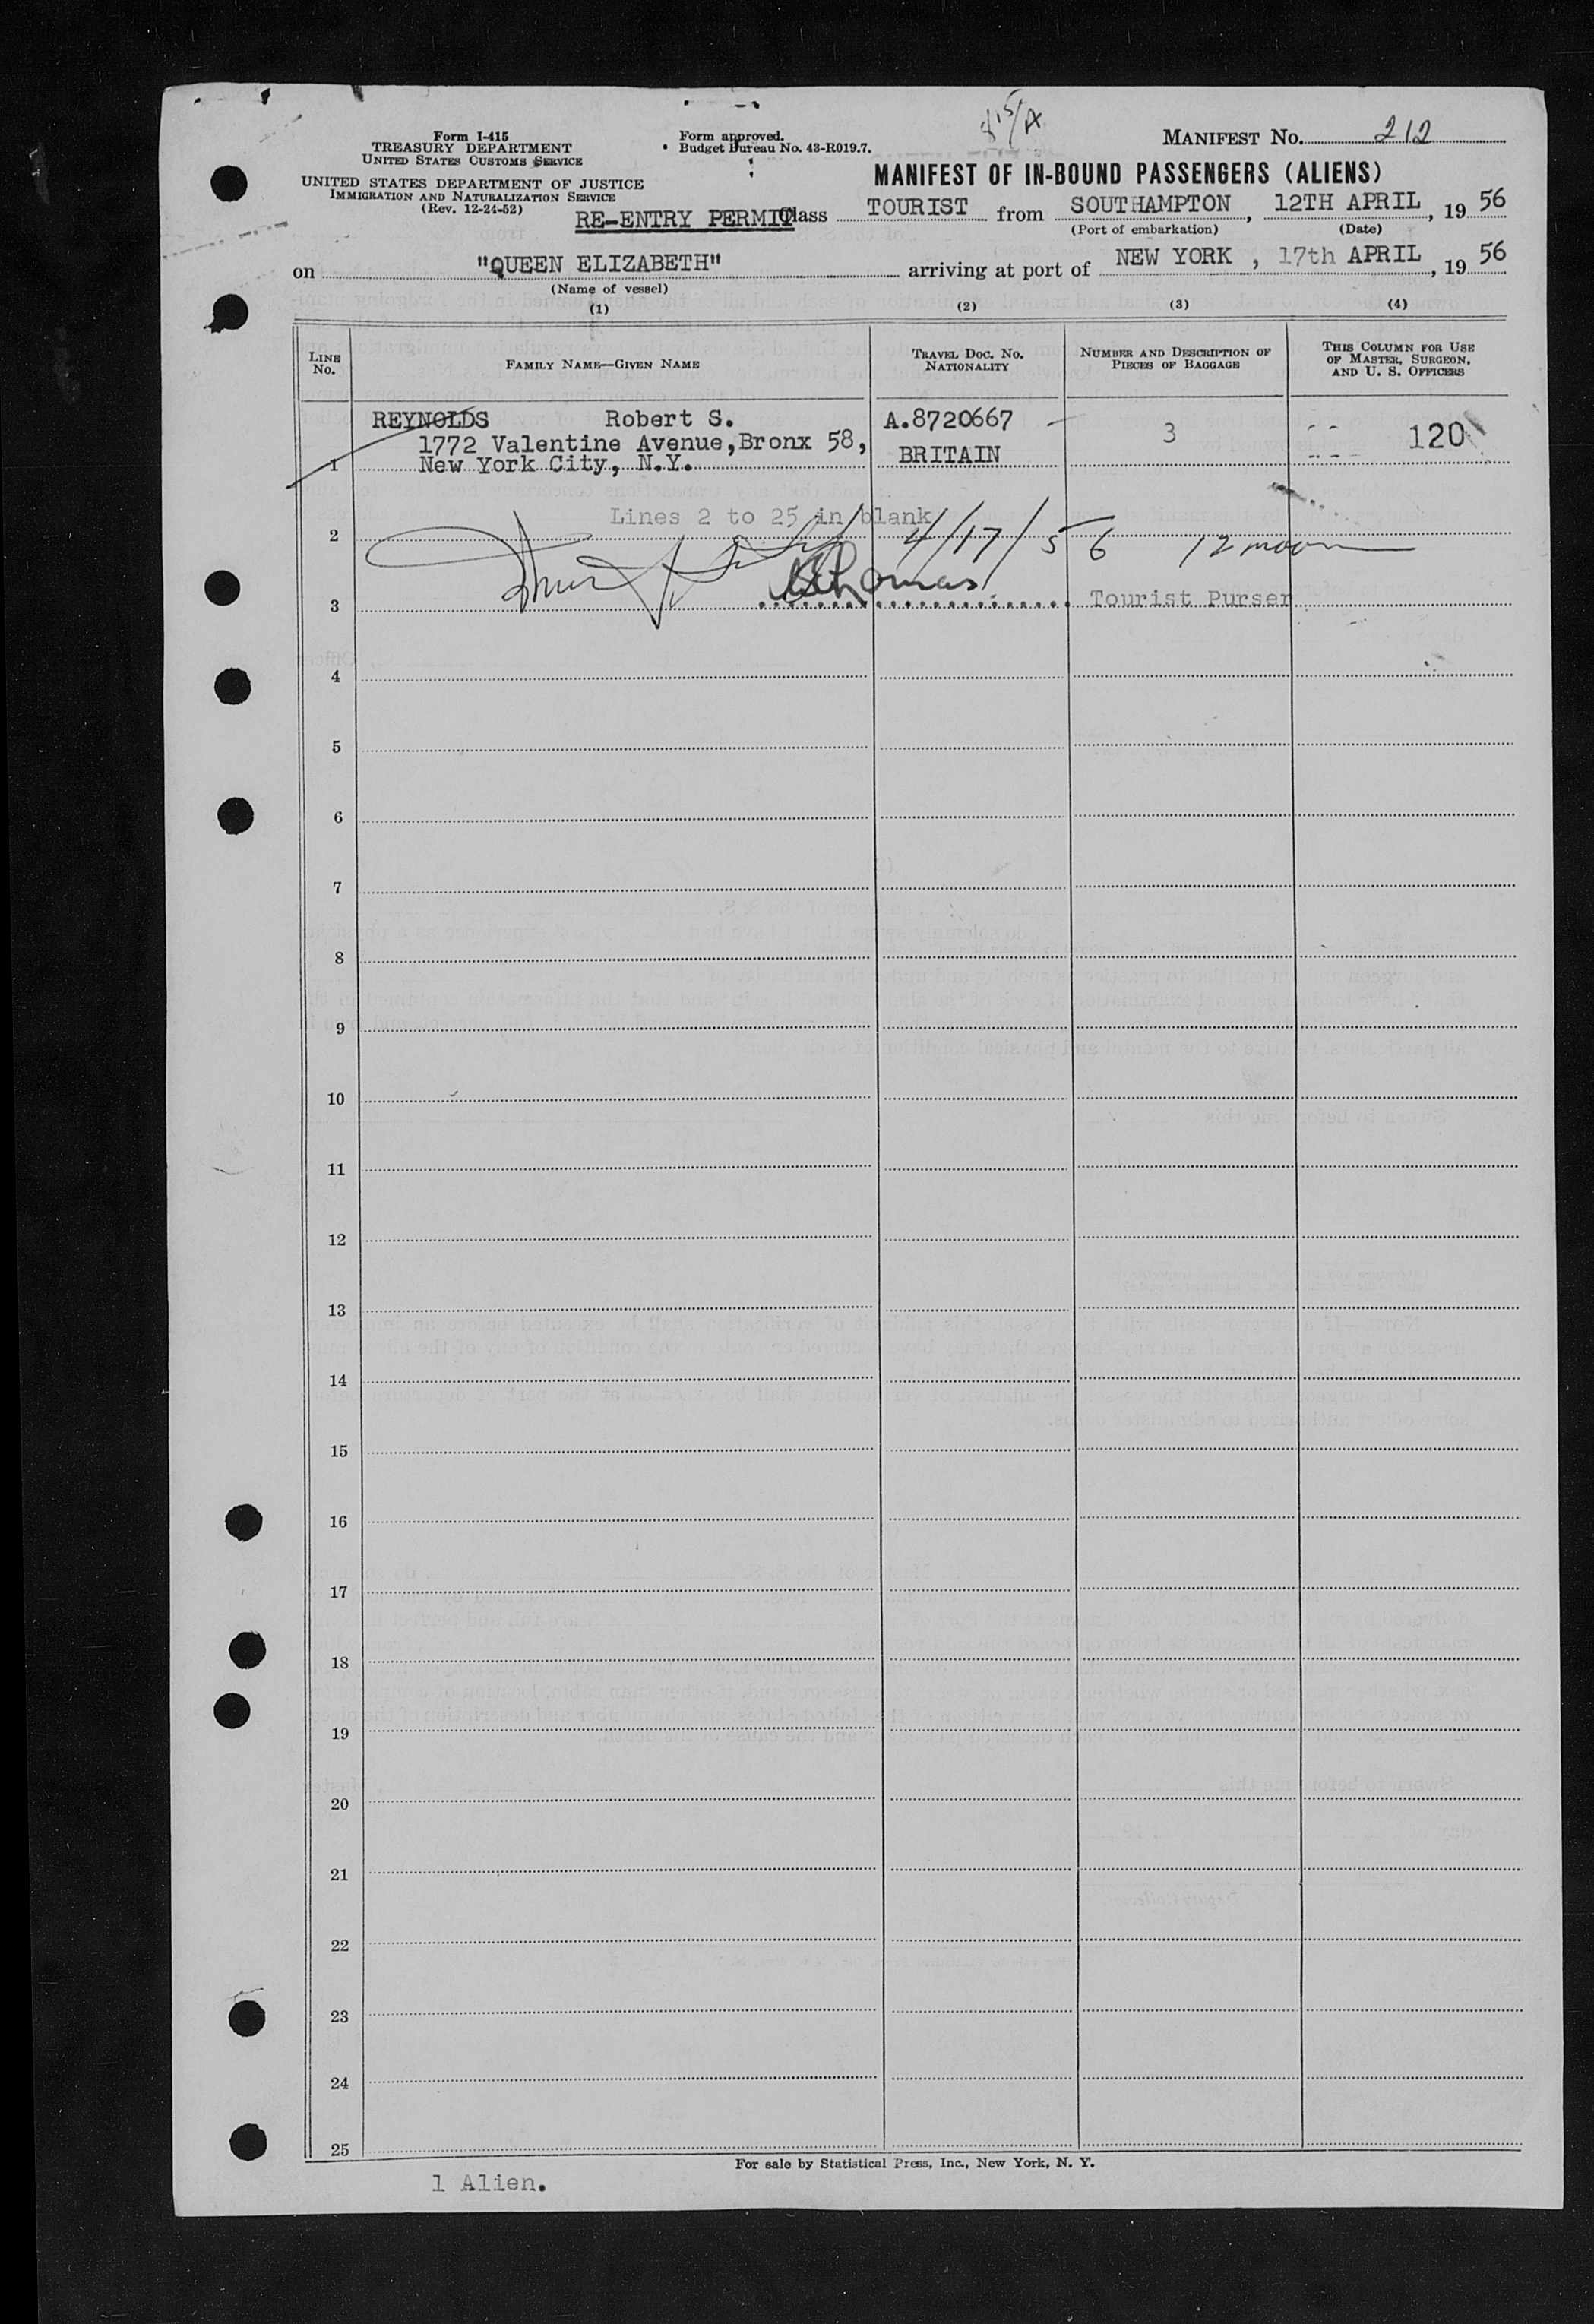 Form I-415
TREASURY DEPARTMENT
UNITED STATES CUSTOMS SERVICE
UNITED STATES DEPARTMENT OF JUSTICE
IMMIGRATION AND NATURALIZATION SERVICE
(Rev. 12-24-52)
Form approved.
Budget Bureau No. 43-R019.7.
MANIFEST No. 212
MANIFEST OF IN-BOUND PASSENGERS (ALIENS)
RE-ENTRY PERMIT Class TOURIST from SOUTHAMPTON, 12TH APRIL, 19 56
(Port of embarkation) (Date)
on "QUEEN ELIZABETH" arriving at port of NEW YORK, 17th APRIL, 19 56
(Name of vessel)
(1) (2) (3) (4)
LINE No. FAMILY NAME—GIVEN NAME TRAVEL DOC. NO. NATIONALITY NUMBER AND DESCRIPTION OF PIECES OF BAGGAGE THIS COLUMN FOR USE OF MASTER, SURGEON, AND U. S. OFFICERS
REYNOLDS Robert S. A.8720667
1772 Valentine Avenue, Bronx 58, 3 120
1 New York City, N.Y. BRITAIN
Lines 2 to 25 in blank
2 4/17/56 12 noon
3 Thomas Tourist Purser
4
5
6
7
8
9
10
11
12
13
14
15
16
17
18
19
20
21
22
23
24
25
For sale by Statistical Press, Inc., New York, N. Y.
1 Alien.